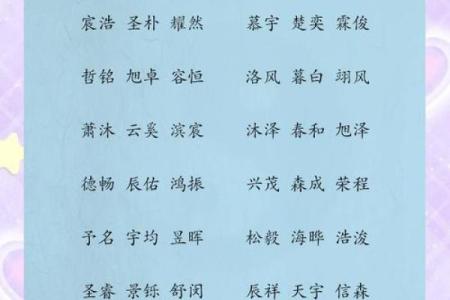 宸浩 圣朴 耀然 慕宇 楚奕 霖俊
哲铭 旭卓 容恒 洛风 暮白 翊风
萧沐 云奚 滨宸 沐泽 春和 旭泽
德畅 辰佑 鸿振 兴茂 森成 荣程
予名 宇均 昱晖 松毅 海晔 浩浚
圣睿 景铄 舒闵 辰祥 天宇 信森